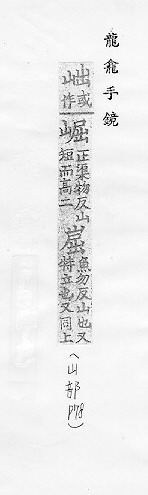 龍龕手鏡
𡶏或作
崛正渠物反山短而高二
崫魚勿反山也又特立也又同上
(山部P78)